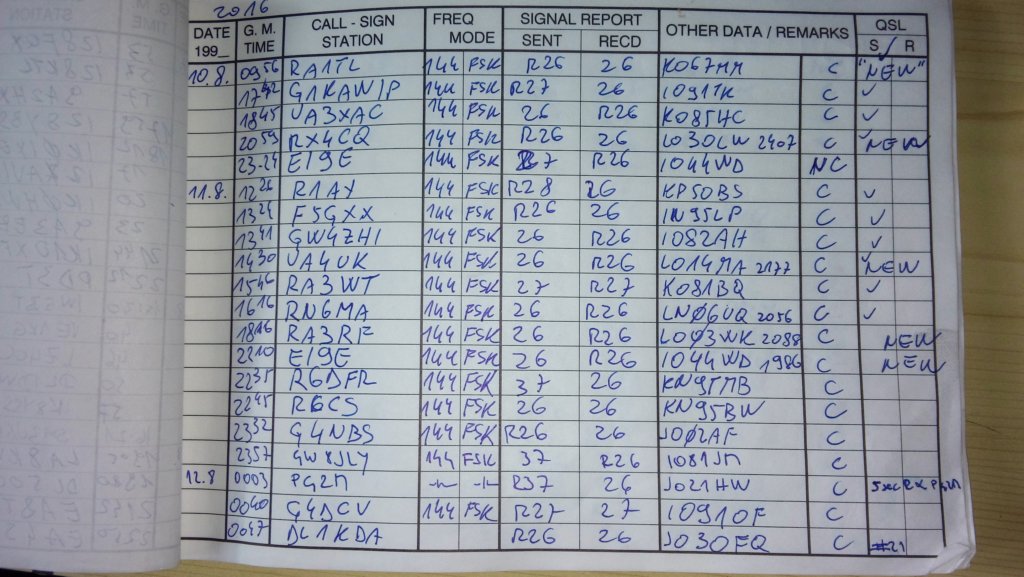 2016
DATE 199_ G. M. TIME CALL - SIGN STATION FREQ MODE SIGNAL REPORT SENT RECD OTHER DATA / REMARKS QSL S R
10.8. 0956 RA1TL 144 FSK R26 26 KO67MM C "NEW"
1742 G1KAW/P 144 FSK R27 26 IO91TK C ✓
1845 UA3XAC 144 FSK 26 R26 KO85HC C ✓
2059 RX4CQ 144 FSK R26 26 LO30CW 2407 C NEW
2324 EI9E 144 FSK R26 IO44WD NC
11.8. 1226 R1AY 144 FSK R28 26 KP50BS C ✓
1324 F5GXX 144 FSK R26 26 IN95LP C ✓
1341 GW4ZHI 144 FSK 26 R26 IO82AH C ✓
1430 UA4UK 144 FSK 26 R26 LO14MA 2177 C NEW
1546 RA3WT 144 FSK 27 R27 KO81BQ C ✓
1616 RN6MA 144 FSK 26 R26 LNØ6UQ 2056 C ✓
1816 RA3RF 144 FSK 26 R26 LOØ3WK 2088 C NEW
2210 EI9E 144 FSK 26 R26 IO44WD 1986 C NEW
2235 R6DFR 144 FSK 37 26 KN95MB C
2245 R6CS 144 FSK 26 26 KN95BW C
2332 G4NBS 144 FSK R26 26 JOØ2AF C
2357 GW8JLY 144 FSK 37 R26 IO81JM C
12.8 0003 PG2M R37 26 JO21HW C
0040 G4DCV 144 FSK R27 27 IO91OF C
0047 DL1KDA R26 26 JO30FQ C #21